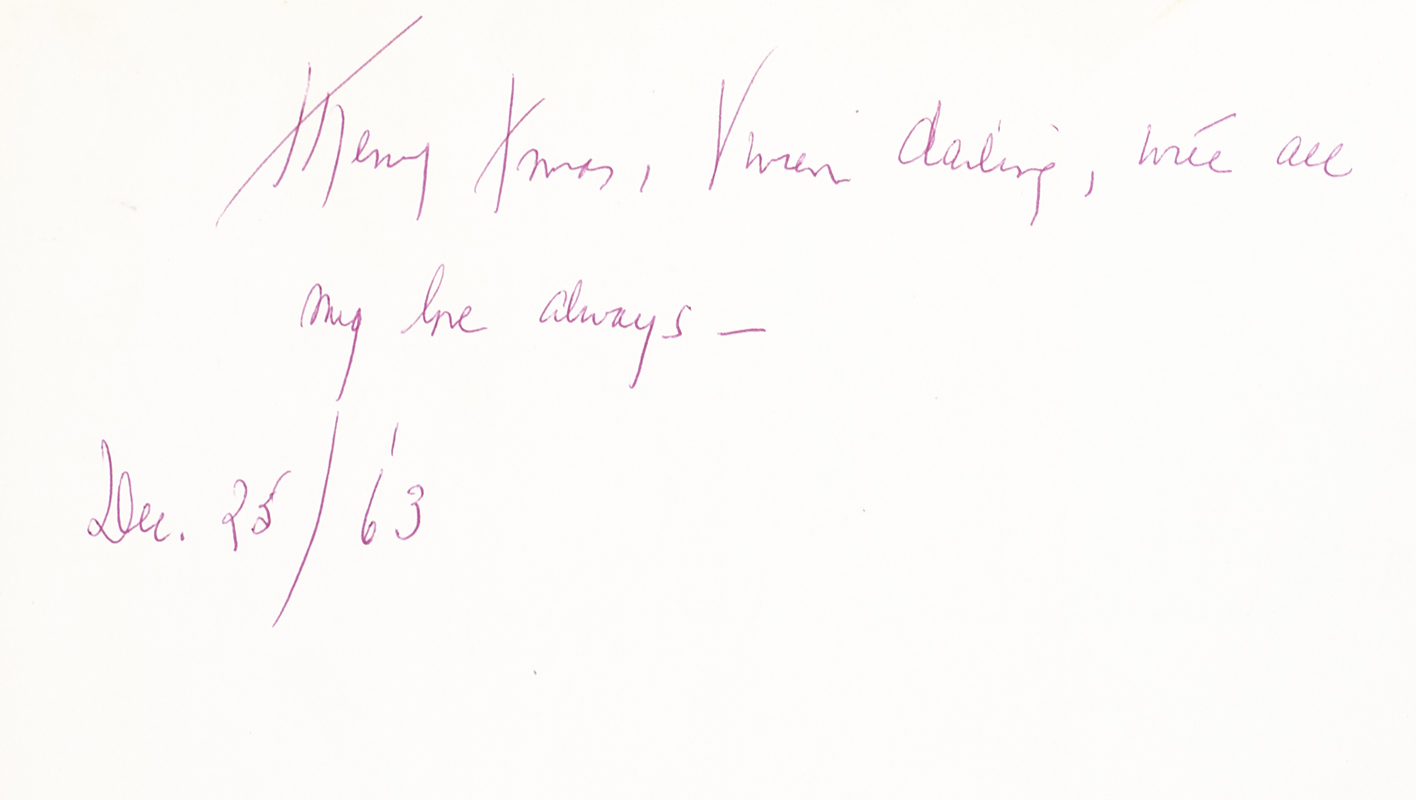 Merry Xmas, Vivien darling, with all
my love always —
Dec. 25/'63